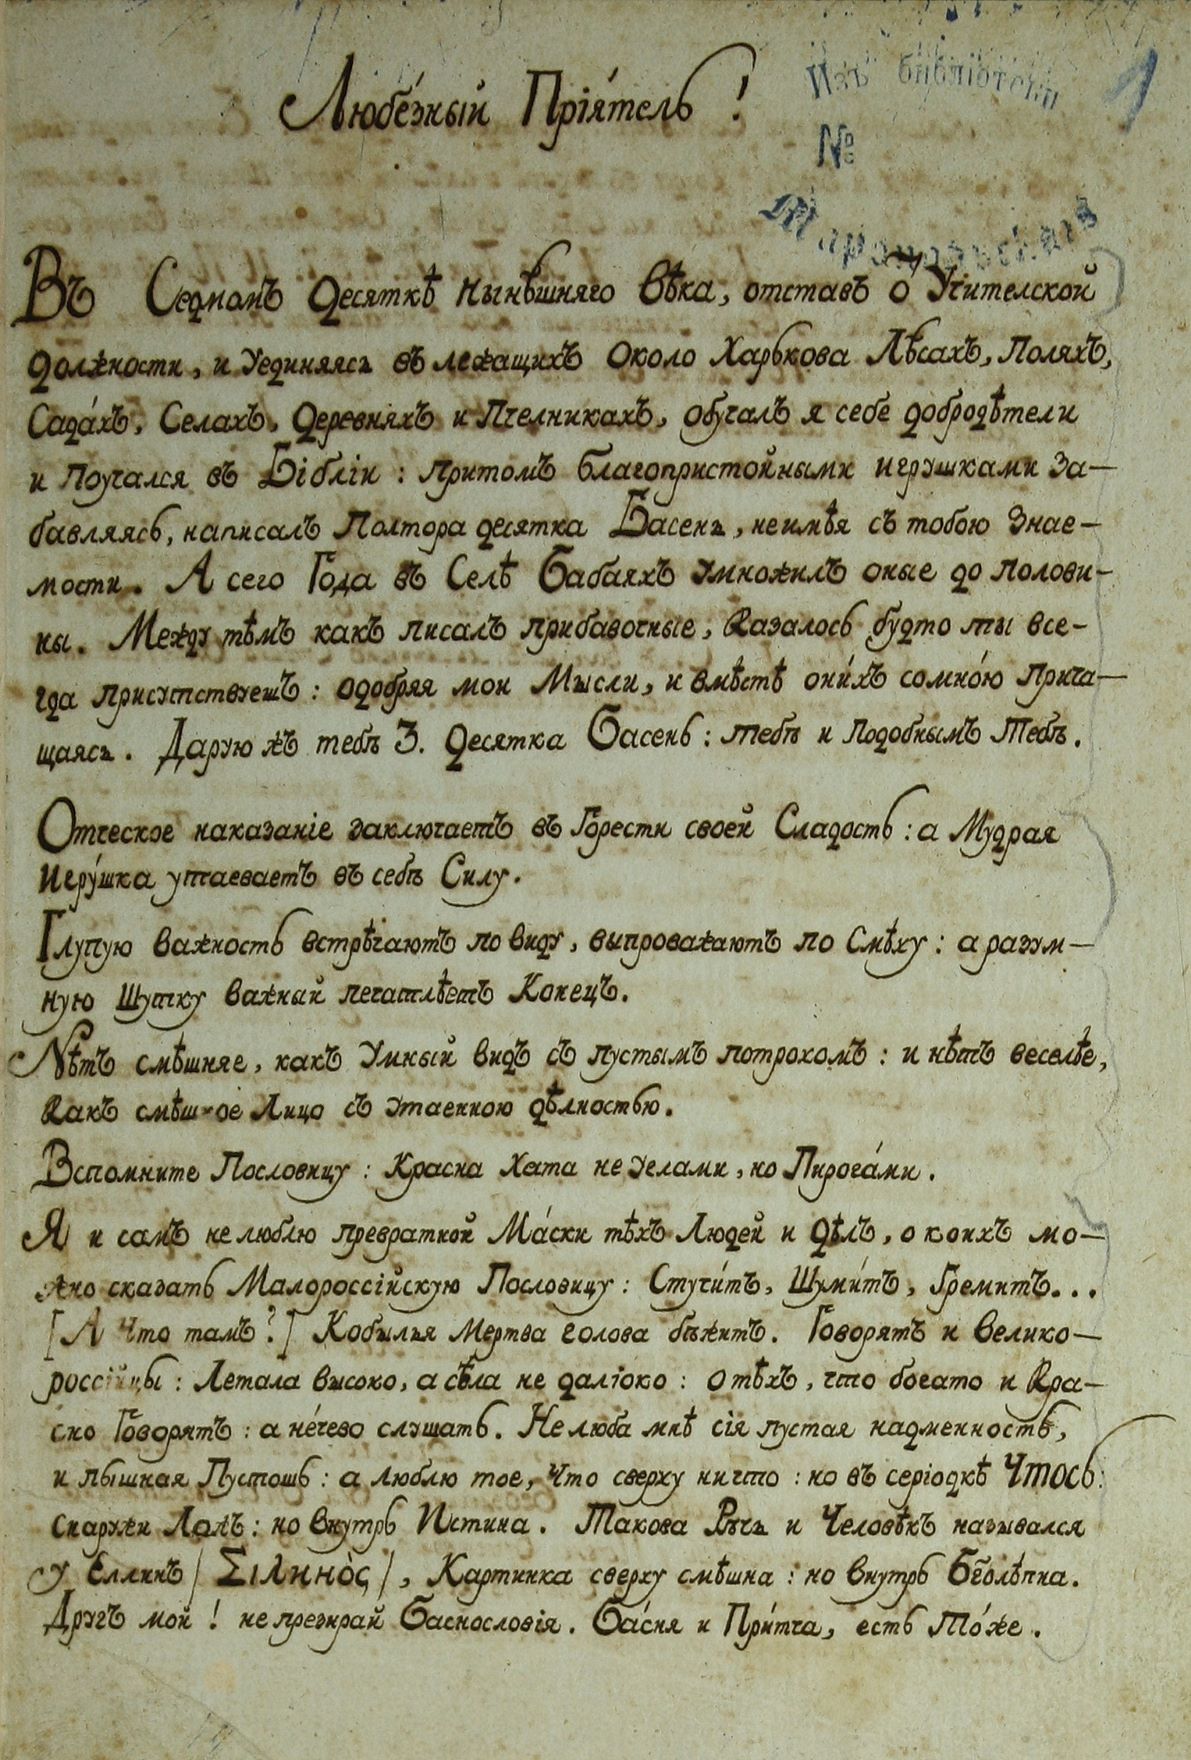 Любе́зный Прія́тель !
Изъ библіотеки
№
1
Въ Седмомъ Десяткѣ нынѣшняго Вѣка, отставъ о Учителской
должности, и Уединяясь въ лежащихъ около Харькова Лѣсахъ, Поляхъ,
Сада́хъ, Селахъ, Деревняхъ и Пчелникахъ, обучалъ я себе добродѣтели
и поучался въ Бібліи : притомъ благопристойными игрушками За–
бавляясь, написалъ Полтора десятка Басень, неимѣя съ тобою Знае–
мости. А сего Года въ Селѣ Бабаяхъ Умножилъ оные до полови–
ны. Между тѣмъ какъ писалъ прибавочные, Казалось будто ты все–
гда присутствуешъ : одобряя мои Мысли, и вмѣстѣ они́хъ сомно́ю прича–
щаясь. Дарую жъ тебѣ 3. Десятка Басень : тебѣ и Подобнымъ Тебѣ.
Отческое наказаніе заключаетъ въ Горести своей Сладость : а Мудрая
Игру́шка утаеваетъ въ себѣ Силу.
Глупую Важность встрѣчаютъ по виду, выпроважаютъ по Смѣху : а разум–
ную Шутку Важный печатлѣетъ Конецъ.
Нѣтъ смѣшняе, какъ Умный видъ съ пустымъ потрохомъ : и нѣтъ веселѣе,
Какъ смѣшное Лицо съ Утаенною дѣлностью.
Вспомните Пословицу : Красна Хата не Углами, но Пирога́ми.
Я и самъ не люблю превратной Ма́ски тѣхъ Людей и Дѣлъ, о коихъ мо–
жно сказать Малороссійскую Пословицу : Стучи́тъ, Шуми́тъ, Гремитъ...
[А Что тамъ?] Кобылья Мертва голова бѣжитъ. Говорятъ и Велико–
россійцы : Летала высоко, а сѣла не даліоко : о тѣхъ, что богато и Кра–
сно Говорятъ : а не́чево слушать. Не люба мнѣ сія пустая надменность,
и пышная Пустошь : а люблю тое, Что сверху ничто : но въ серіодкѣ Чтось :
снаружи Ложъ : но внутрь Истина. Такова Рѣчь и Человѣкъ назывался
у Еллинъ / Σιληνὸς /, Картинка сверху смѣшна : но внутрь Бголѣпна.
Другъ мой ! не презирай Баснословія. Ба́сня и При́тча, есть То́же.